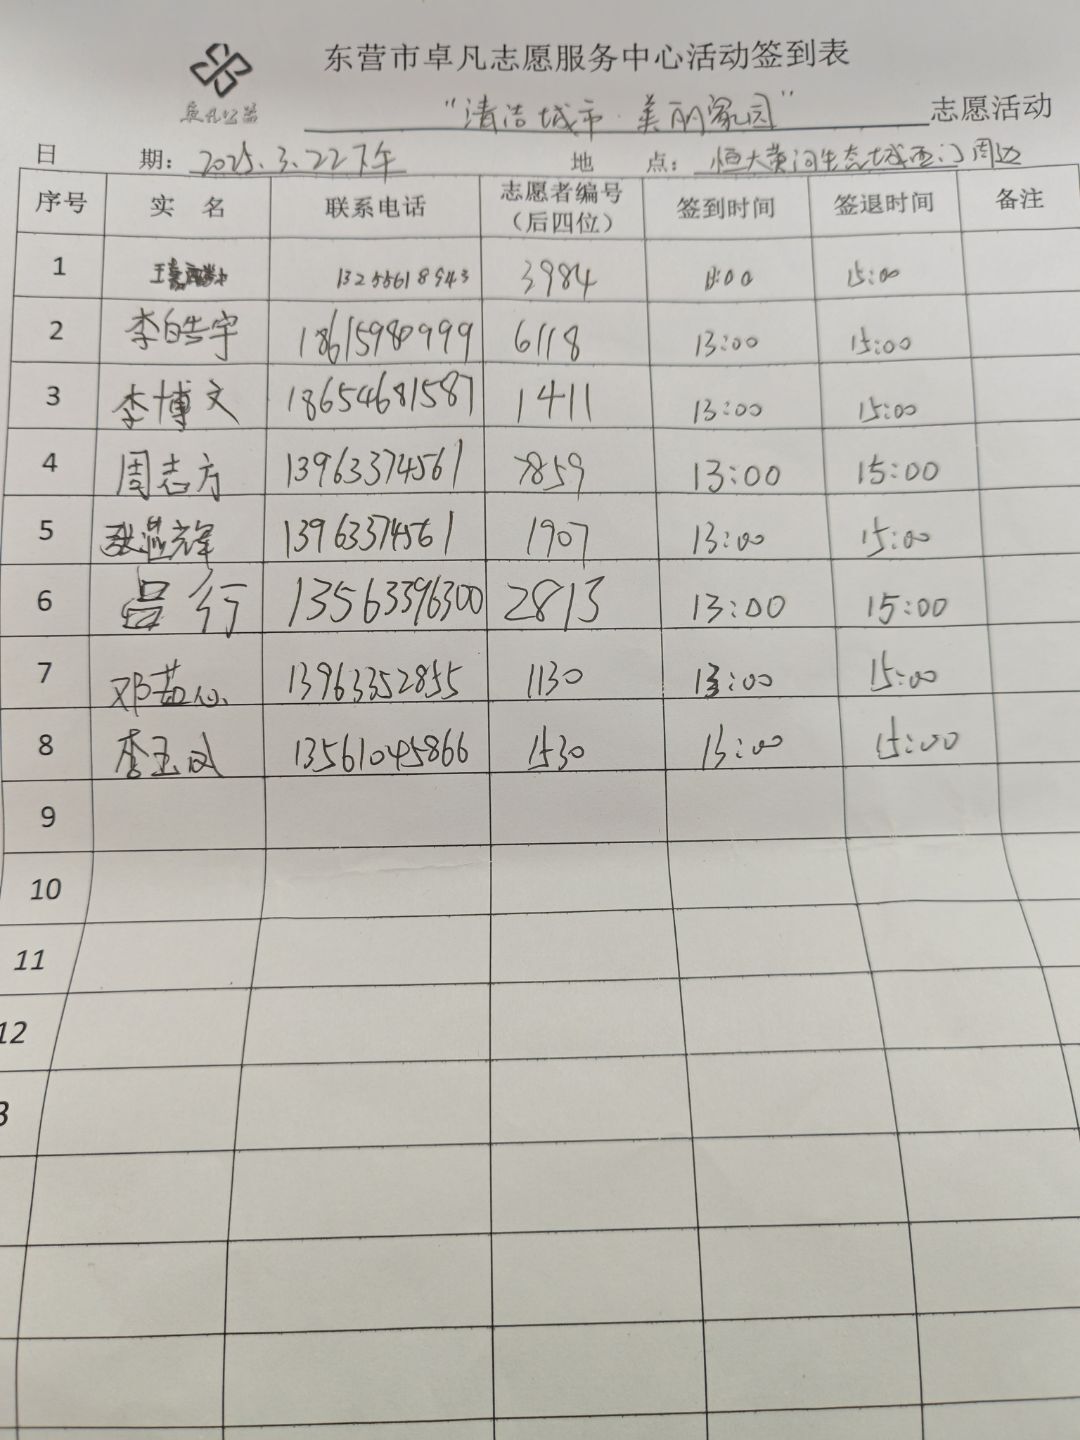 东营市卓凡志愿服务中心活动签到表
卓凡公益
“清洁城市·美丽家园” 志愿活动
日 期: 2025.3.22下午 地 点: 恒大黄河生态城西门周边
序号 实 名 联系电话 志愿者编号（后四位） 签到时间 签退时间 备注
1 13255618943 3984 15:00
2 李皓宇 18615980999 6118 13:00 15:00
3 李博文 18654681587 1411 13:00 15:00
4 周志方 13963374561 7859 13:00 15:00
5 13963374561 1907 13:00 15:00
6 吕行 13563396300 2813 13:00 15:00
7 邓茹心 13963352855 1130 13:00 15:00
8 李玉凤 13561045866 1530 13:00 15:00
9
10
11
12
3